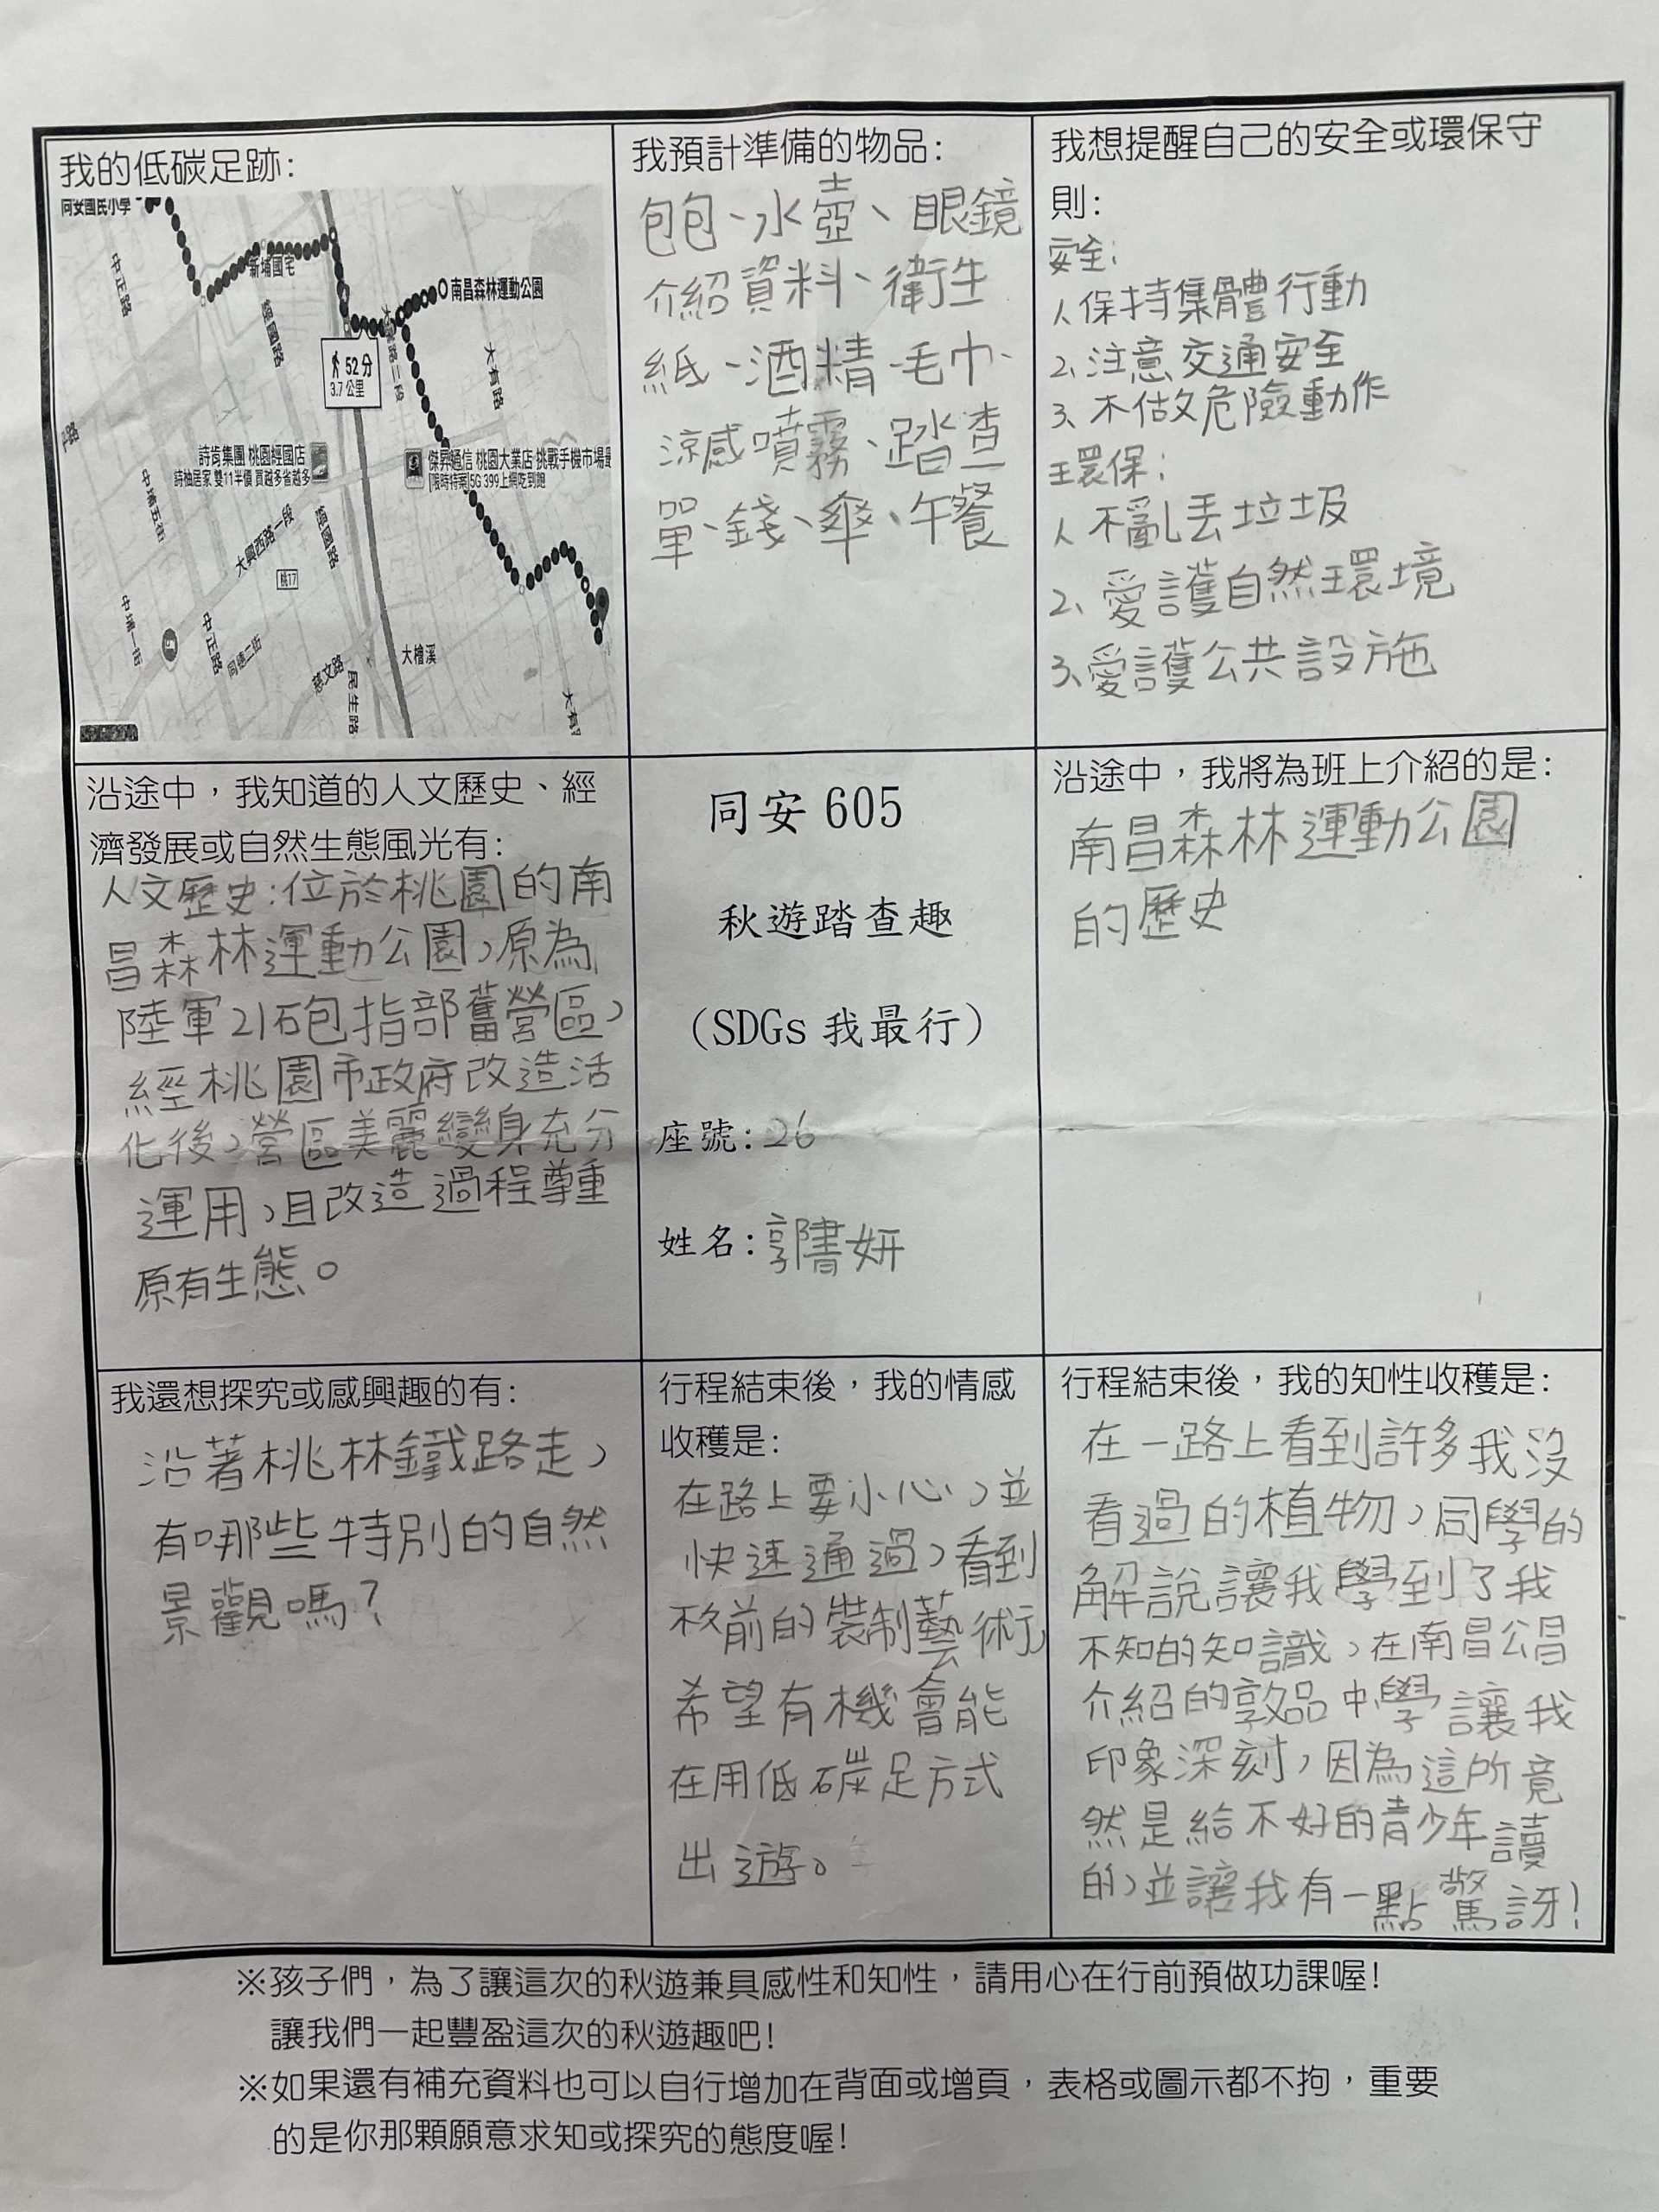 我的低碳足跡:
同安國民小學
新埔國宅
南昌森林運動公園
中正路
經國路
大有路
52 分
3.7 公里
詩肯集團 桃園經國店
詩柚居家 雙11半價 買越多省越多
傑昇通信 桃園大業店 挑戰手機市場最
[限時特案]5G 399上網吃到飽
中埔五街
大興西路一段
經國路
桃17
中埔一街
中正路
同德二街
慈文路
民生路
大檜溪
大有
我預計準備的物品:
包包、水壺、眼鏡
介紹資料、衛生
紙、酒精、毛巾、
涼感噴霧、踏查
單、錢、傘、午餐
我想提醒自己的安全或環保守
則:
安全:
1、保持集體行動
2、注意交通安全
3、不做危險動作
環保:
1、不亂丟垃圾
2、愛護自然環境
3、愛護公共設施
沿途中，我知道的人文歷史、經
濟發展或自然生態風光有:
人文歷史:位於桃園的南
昌森林運動公園，原為
陸軍21砲指部舊營區，
經桃園市政府改造活
化後，營區美麗變身充分
運用，且改造過程尊重
原有生態。
同安 605
秋遊踏查趣
（SDGs 我最行）
座號:26
姓名:郭書妍
沿途中，我將為班上介紹的是:
南昌森林運動公園
的歷史
我還想探究或感興趣的有:
沿著桃林鐵路走，
有哪些特別的自然
景觀嗎?
行程結束後，我的情感
收穫是:
在路上要小心，並
快速通過，看到
以前的裝制藝術，
希望有機會能
在用低碳足方式
出遊。
行程結束後，我的知性收穫是:
在一路上看到許多我沒
看過的植物，同學的
解說讓我學到了我
不知的知識，在南昌公昌
介紹的敦品中學讓我
印象深刻，因為這所竟
然是給不好的青少年讀
的，並讓我有一點驚訝!
※孩子們，為了讓這次的秋遊兼具感性和知性，請用心在行前預做功課喔!
讓我們一起豐盈這次的秋遊趣吧!
※如果還有補充資料也可以自行增加在背面或增頁，表格或圖示都不拘，重要
的是你那顆願意求知或探究的態度喔!